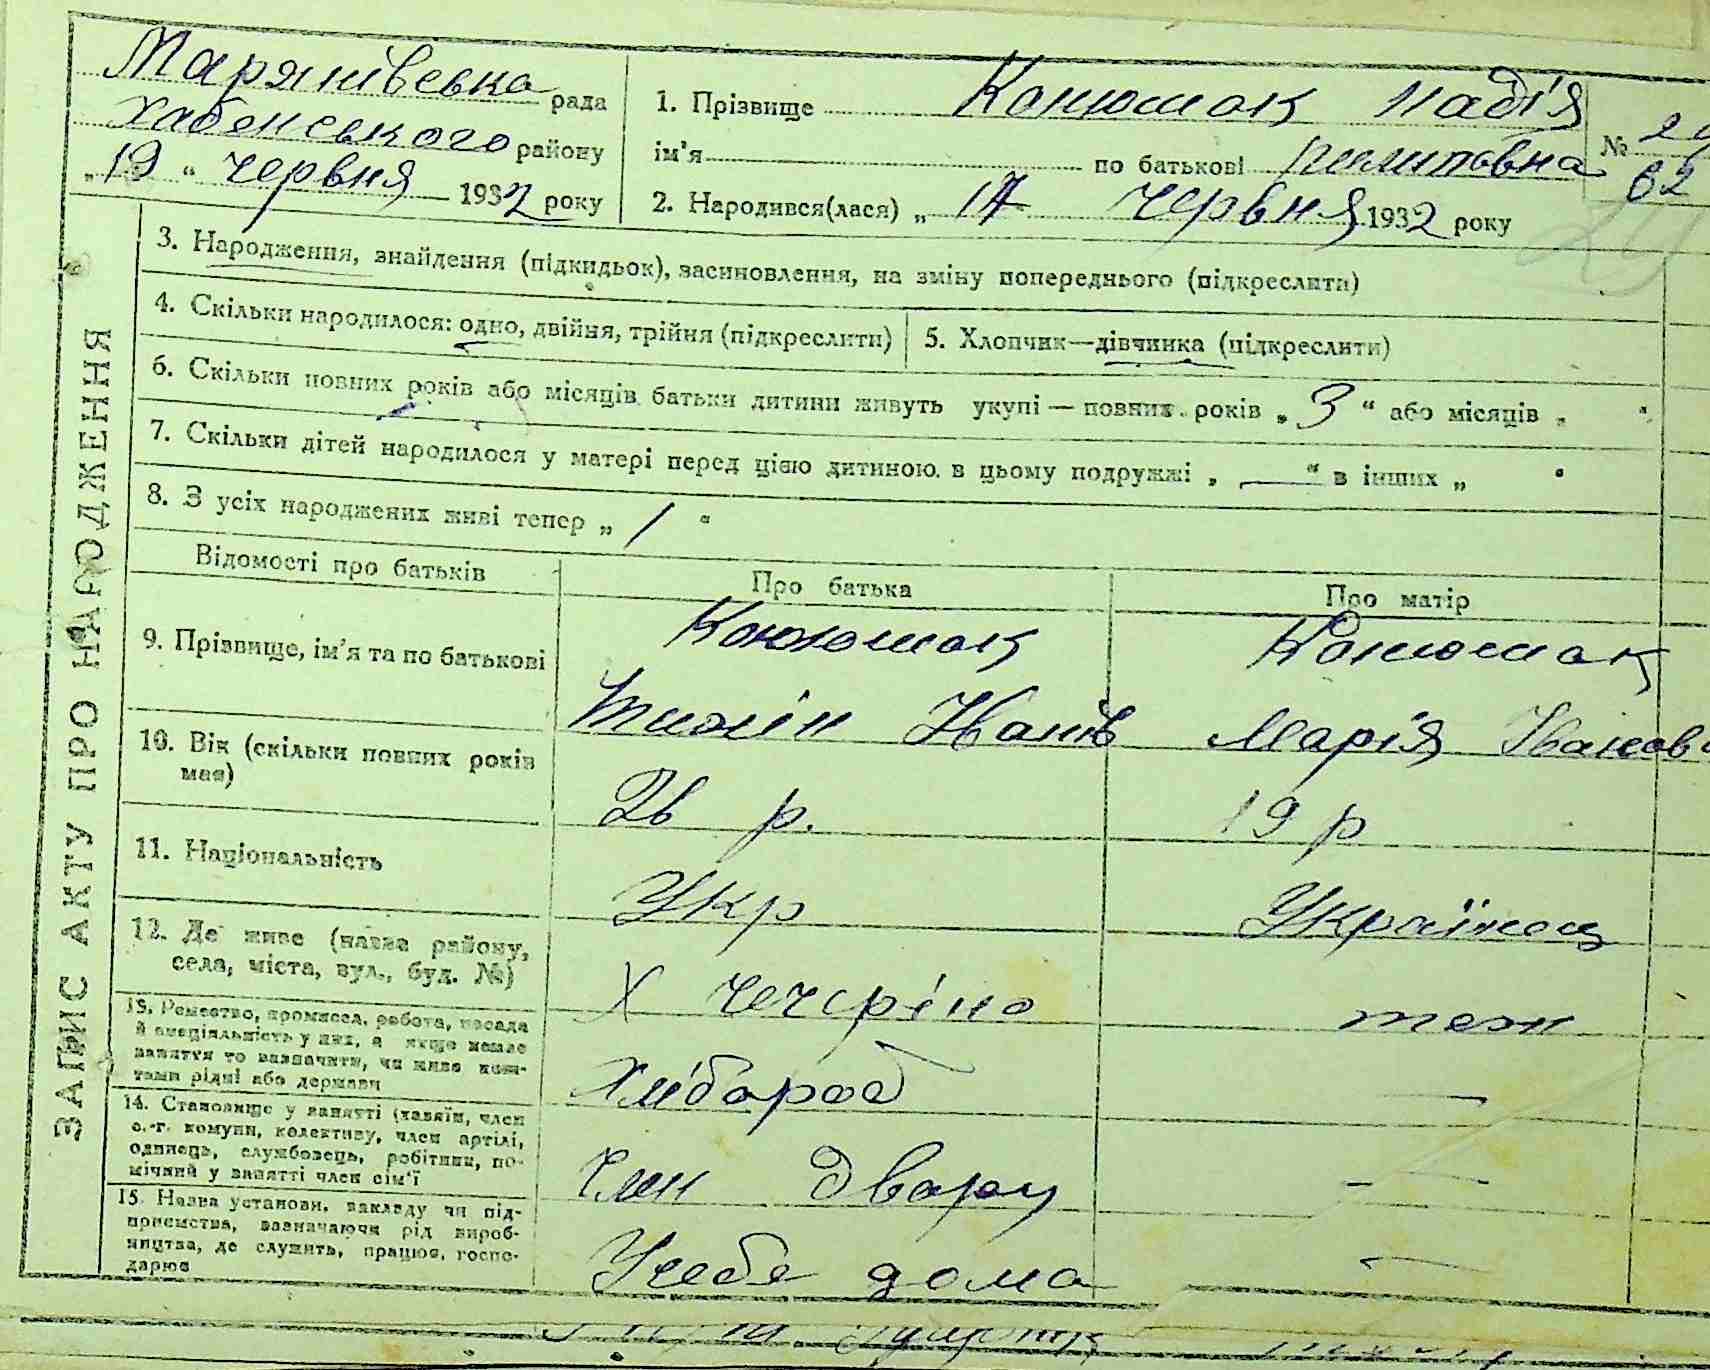 Мар'янівська рада
Хабенського району
„19“ червня 1932 року
1. Прізвище Конюшок Надія
ім'я по батькові Пилиповна
№ 29
62
2. Народився(лася) „17 червня 1932 року
3. Народження, знайдення (підкидьок), засиновлення, на зміну попереднього (підкреслити)
4. Скільки народилося: одно, двійня, трійня (підкреслити)
5. Хлопчик—дівчинка (підкреслити)
6. Скільки повних років або місяців батьки дитини живуть укупі — повних років „3“ або місяців „ “
7. Скільки дітей народилося у матері перед цією дитиною в цьому подружжі „—“ в інших „ “
8. З усіх народжених живі тепер „1“
ЗАПИС АКТУ ПРО НАРОДЖЕННЯ
Відомості про батьків
Про батька
Про матір
9. Прізвище, ім'я та по батькові
Конюшок
Іванів
Конюшок
Марія Іванов
10. Вік (скільки повних років
має)
26 р.
19 р
11. Національність
Укр
Українец
12. Де живе (назва району,
села, міста, вул., буд. №)
Х
теж
13. Ремество, промисел, робота, посада
й спеціяльність у них, а якщо немає
заняття то зазначити, чи живе кош-
тами рідні або держави
Хлібороб
—
14. Становище у занятті (хазяїн, член
с.-г. комуни, колективу, член артілі,
одинець, службовець, робітник, по-
мічний у занятті член сім'ї
Член двору
—
15. Назва установи, закладу чи під-
приємства, зазначаючи рід вироб-
ництва, де служить, працює, госпо-
дарює
У себе дома
—